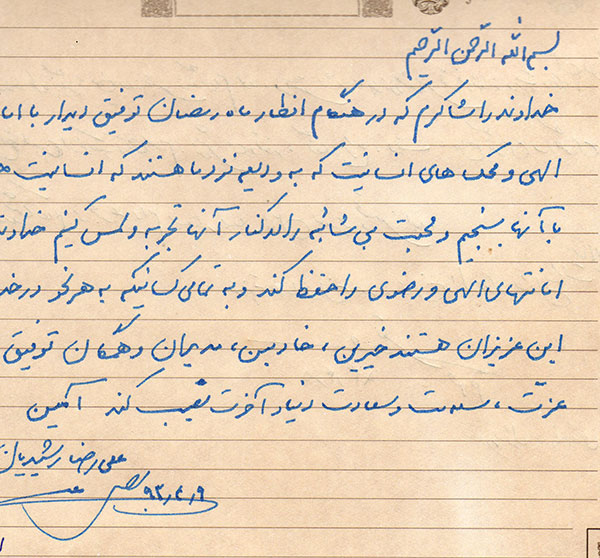 بسم الله الرحمن الرحیم
خداوند را شاکرم که در هنگام افطار ماه رمضان توفیق دیدار با اما
الهی و محک های انسانیت که به ودیعه نزد ما هستند که انسانیت
با آنها بسنجیم و محبت بی شائبه را در کنار آنها تجربه و لمس کنیم خداوند
امانتهای الهی و رضوی را حفظ کند و به تمامی کسانیکه به هر نحو در خد
این عزیزان هستند خیرین، خادمین، مدیران و همگان توفیق
عزت، سلامت و سعادت دنیا و آخرت نصیب کند آمین
علی رضا رشیدیان
۹۳٫۴٫۹